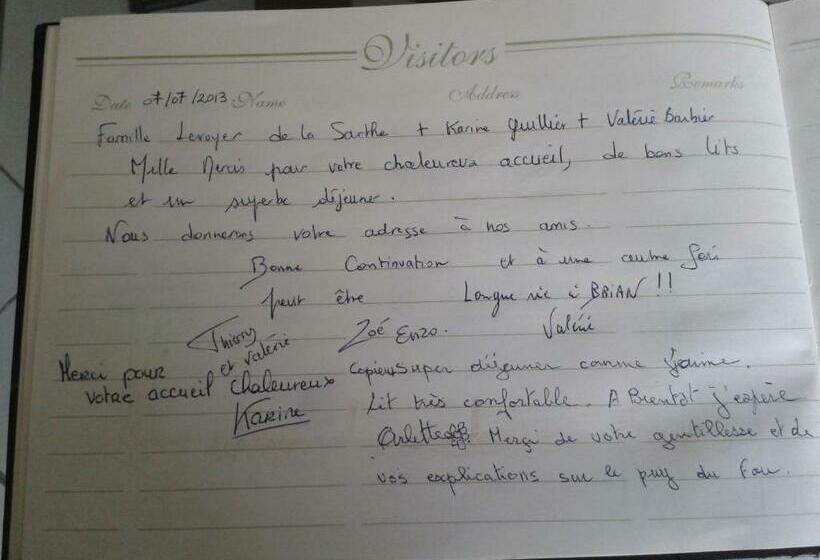 Visitors
Date 07/07/2013 Name Address Remarks
Famille Levoyer de la Sarthe + Karine Quillier + Valérie Barbier
Mille Mercis pour votre chaleureux accueil, de bons lits
et un superbe déjeuner.
Nous donnerons votre adresse à nos amis.
Bonne Continuation et à une autre fois
peut être Longue vie à BRiAN !!
Thierry et Valérie Zoé Enzo. Valérie
Merci pour
votre accueil chaleureux
Karine
Copieux super déjeuner comme j'aime.
Lit très confortable. A Bientot j'espère
Arlette Merçi de votre gentillesse et de
vos explications sur le puy du Fou.